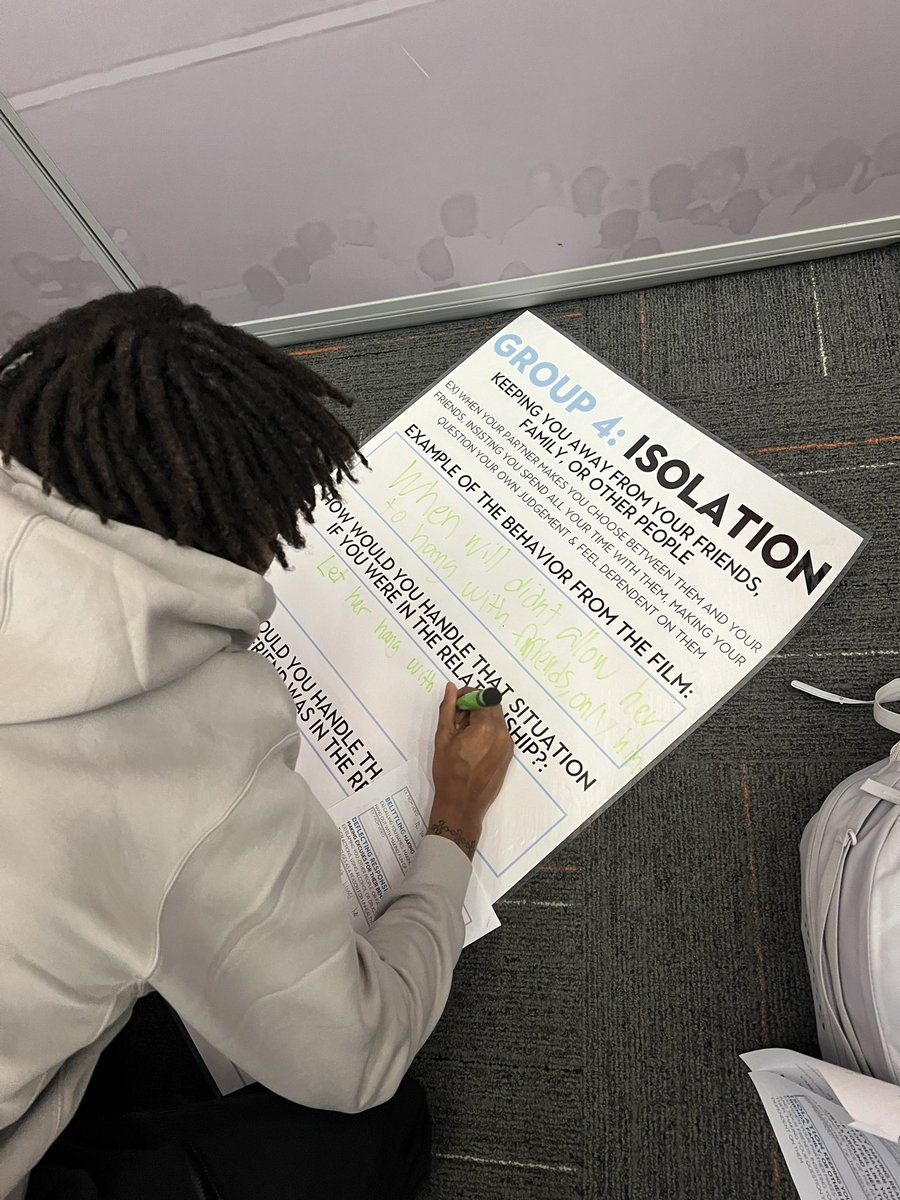 GROUP 4: ISOLATION
KEEPING YOU AWAY FROM YOUR FRIENDS,
FAMILY, OR OTHER PEOPLE
EX) WHEN YOUR PARTNER MAKES YOU CHOOSE BETWEEN THEM AND YOUR
FRIENDS, INSISTING YOU SPEND ALL YOUR TIME WITH THEM, MAKING YOUR
QUESTION YOUR OWN JUDGEMENT & FEEL DEPENDENT ON THEM
EXAMPLE OF THE BEHAVIOR FROM THE FILM:
When will didnt allow her
to hang with friends, only him
HOW WOULD YOU HANDLE THAT SITUATION
IF YOU WERE IN THE RELATIONSHIP?:
Let her hang with
OULD YOU HANDLE TH
FRIEND WAS IN THE RE
BELITTLING
MAKING
DEFLECTING RESPONSI
MAKING EXCUSES FOR THEIR BEH